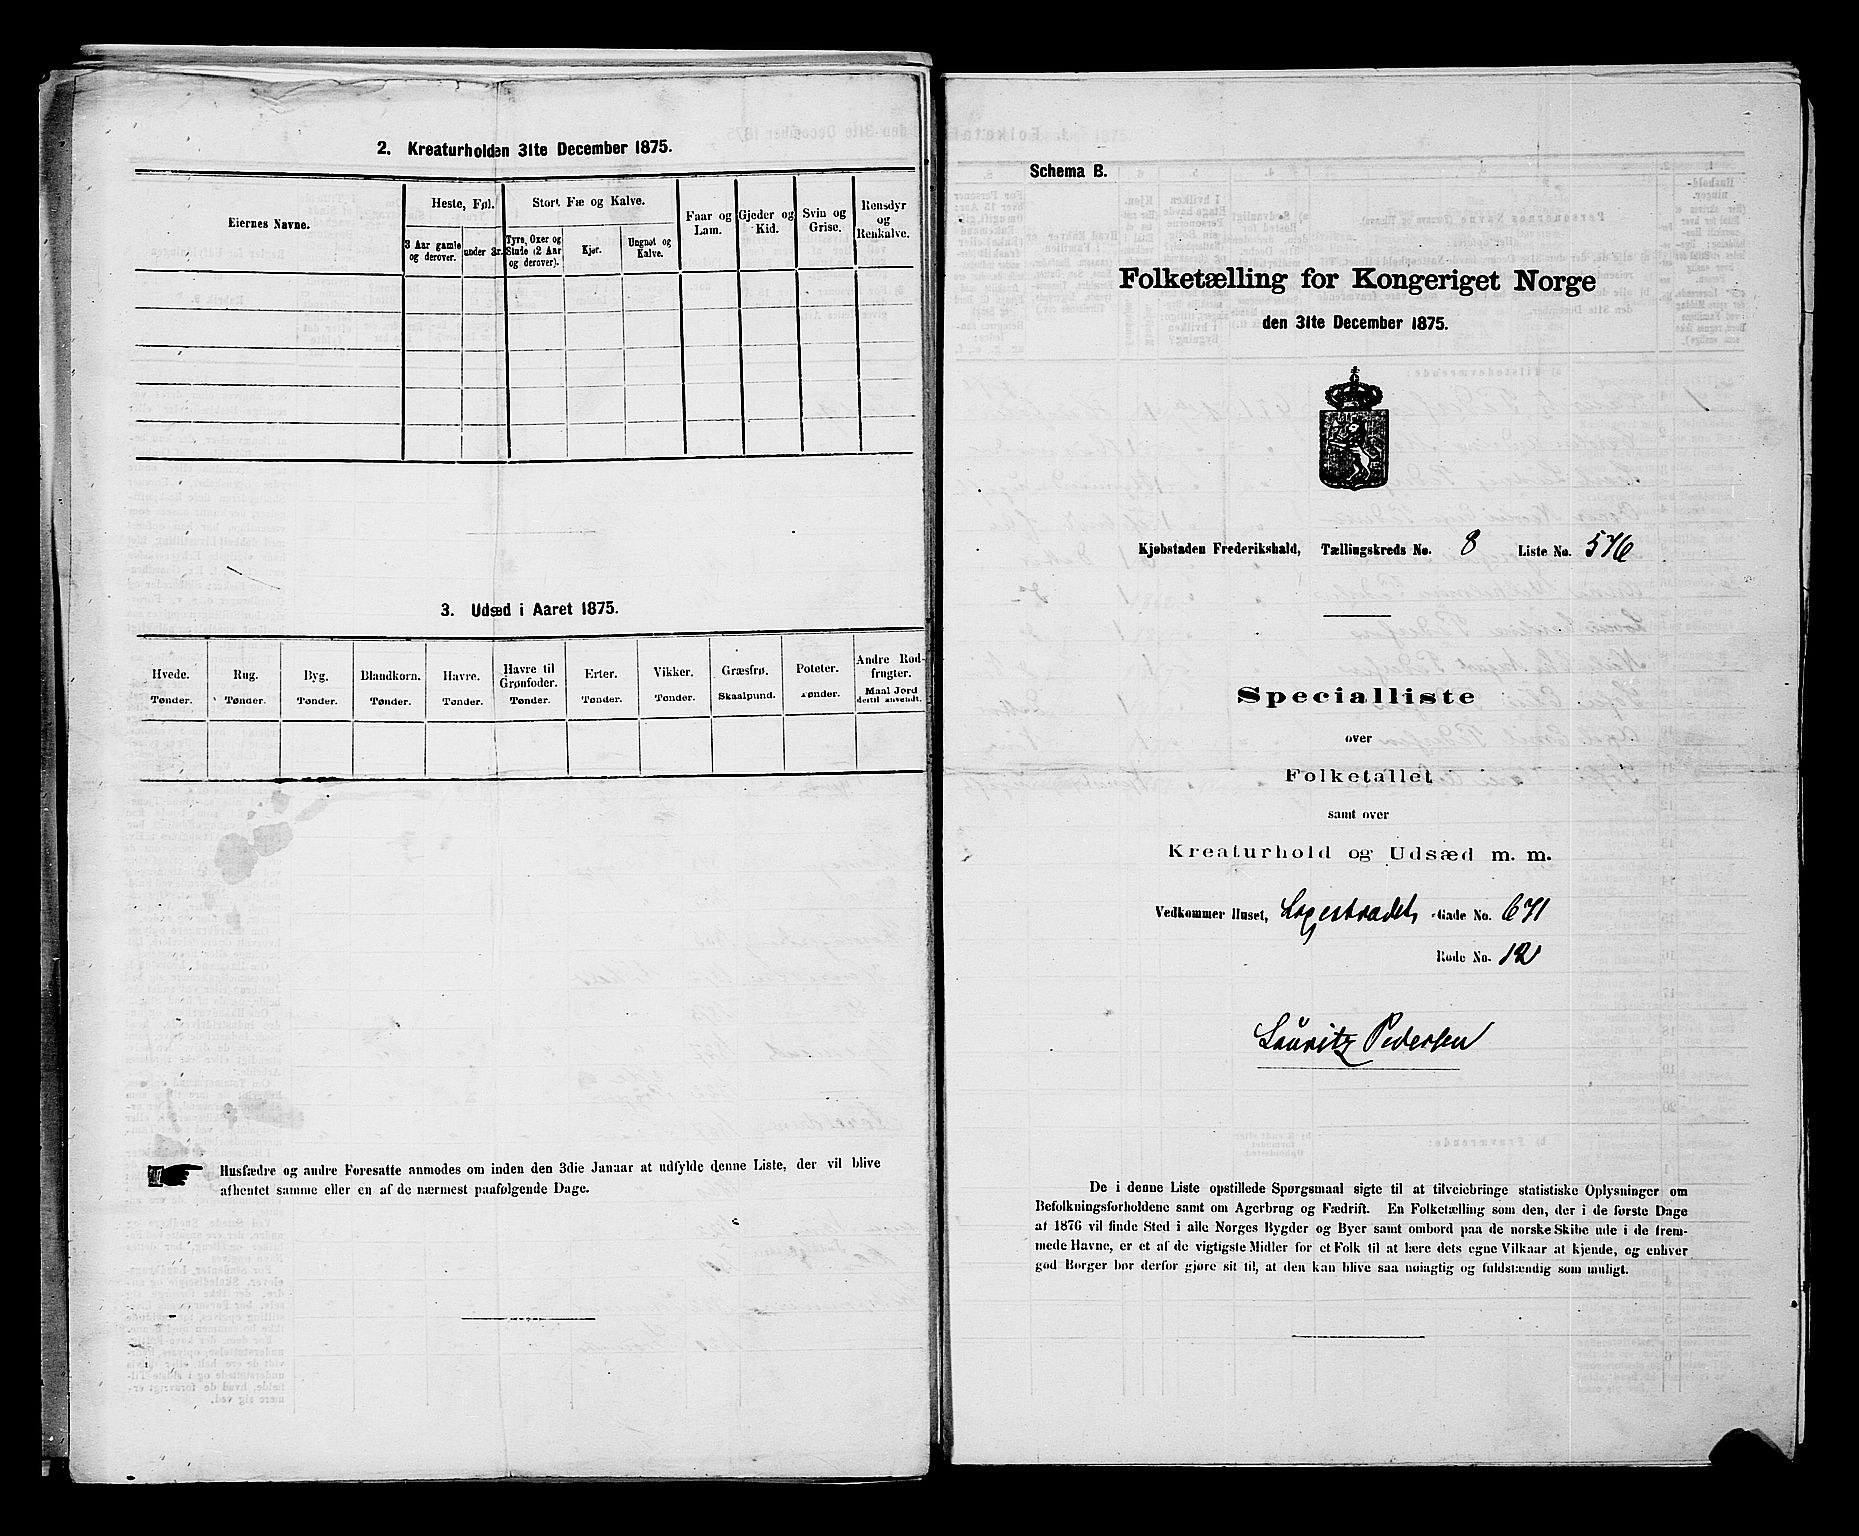 2. Kreaturholden 31te December 1875.
Eiernes Navne.
Heste, Føl.
3 Aar gamle og derover.
under 3 Ar.
Stort Fæ og Kalve.
Tyre, Oxer og Stude (2 Aar og derover).
Kjør.
Ungnøt og Kalve.
Faar og Lam.
Gjeder og Kid.
Svin og Grise.
Rensdyr og Renkalve.
3. Udsæd i Aaret 1875.
Hvede. Tønder.
Rug. Tønder.
Byg. Tønder.
Blandkorn. Tønder.
Havre. Tønder.
Havre til Grønfoder. Tønder.
Erter. Tønder.
Vikker. Tønder.
Græsfrø. Skaalpund.
Poteter. Tønder.
Andre Rodfrugter. Maal Jord dertil anvendt.
Husfædre og andre Foresatte anmodes om inden den 3die Januar at udfylde denne Liste, der vil blive
afhentet samme eller en af de nærmest paafølgende Dage.
Schema B.
Folketælling for Kongeriget Norge
den 31te December 1875.
Kjøbstaden Frederikshald, Tællingskreds No. 8 Liste No. 576
Specialliste
over
Folketallet
samt over
Kreaturhold og Udsæd m. m.
Vedkommer Huset, Gade No. 671
Rode No. 12
Lauritz Pedersen
De i denne Liste opstillede Spørgsmaal sigte til at tilveiebringe statistiske Oplysninger om
Befolkningsforholdene samt om Agerbrug og Fædrift. En Folketælling som den, der i de første Dage
af 1876 vil finde Sted i alle Norges Bygder og Byer samt ombord paa de norske Skibe ude i de frem-
mede Havne, er et af de vigtigste Midler for et Folk til at lære dets egne Vilkaar at kjende, og enhver
god Borger bør derfor gjøre sit til, at den kan blive saa nøiagtig og fuldstændig som muligt.